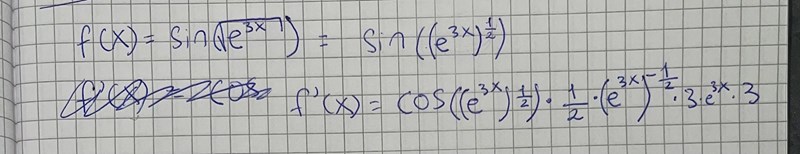 f(x) = sin(√e^{3x}) = sin((e^{3x})^{1/2})
f'(x) = cos((e^{3x})^{1/2}) · 1/2 · (e^{3x})^{-1/2} · 3 · e^{3x} · 3